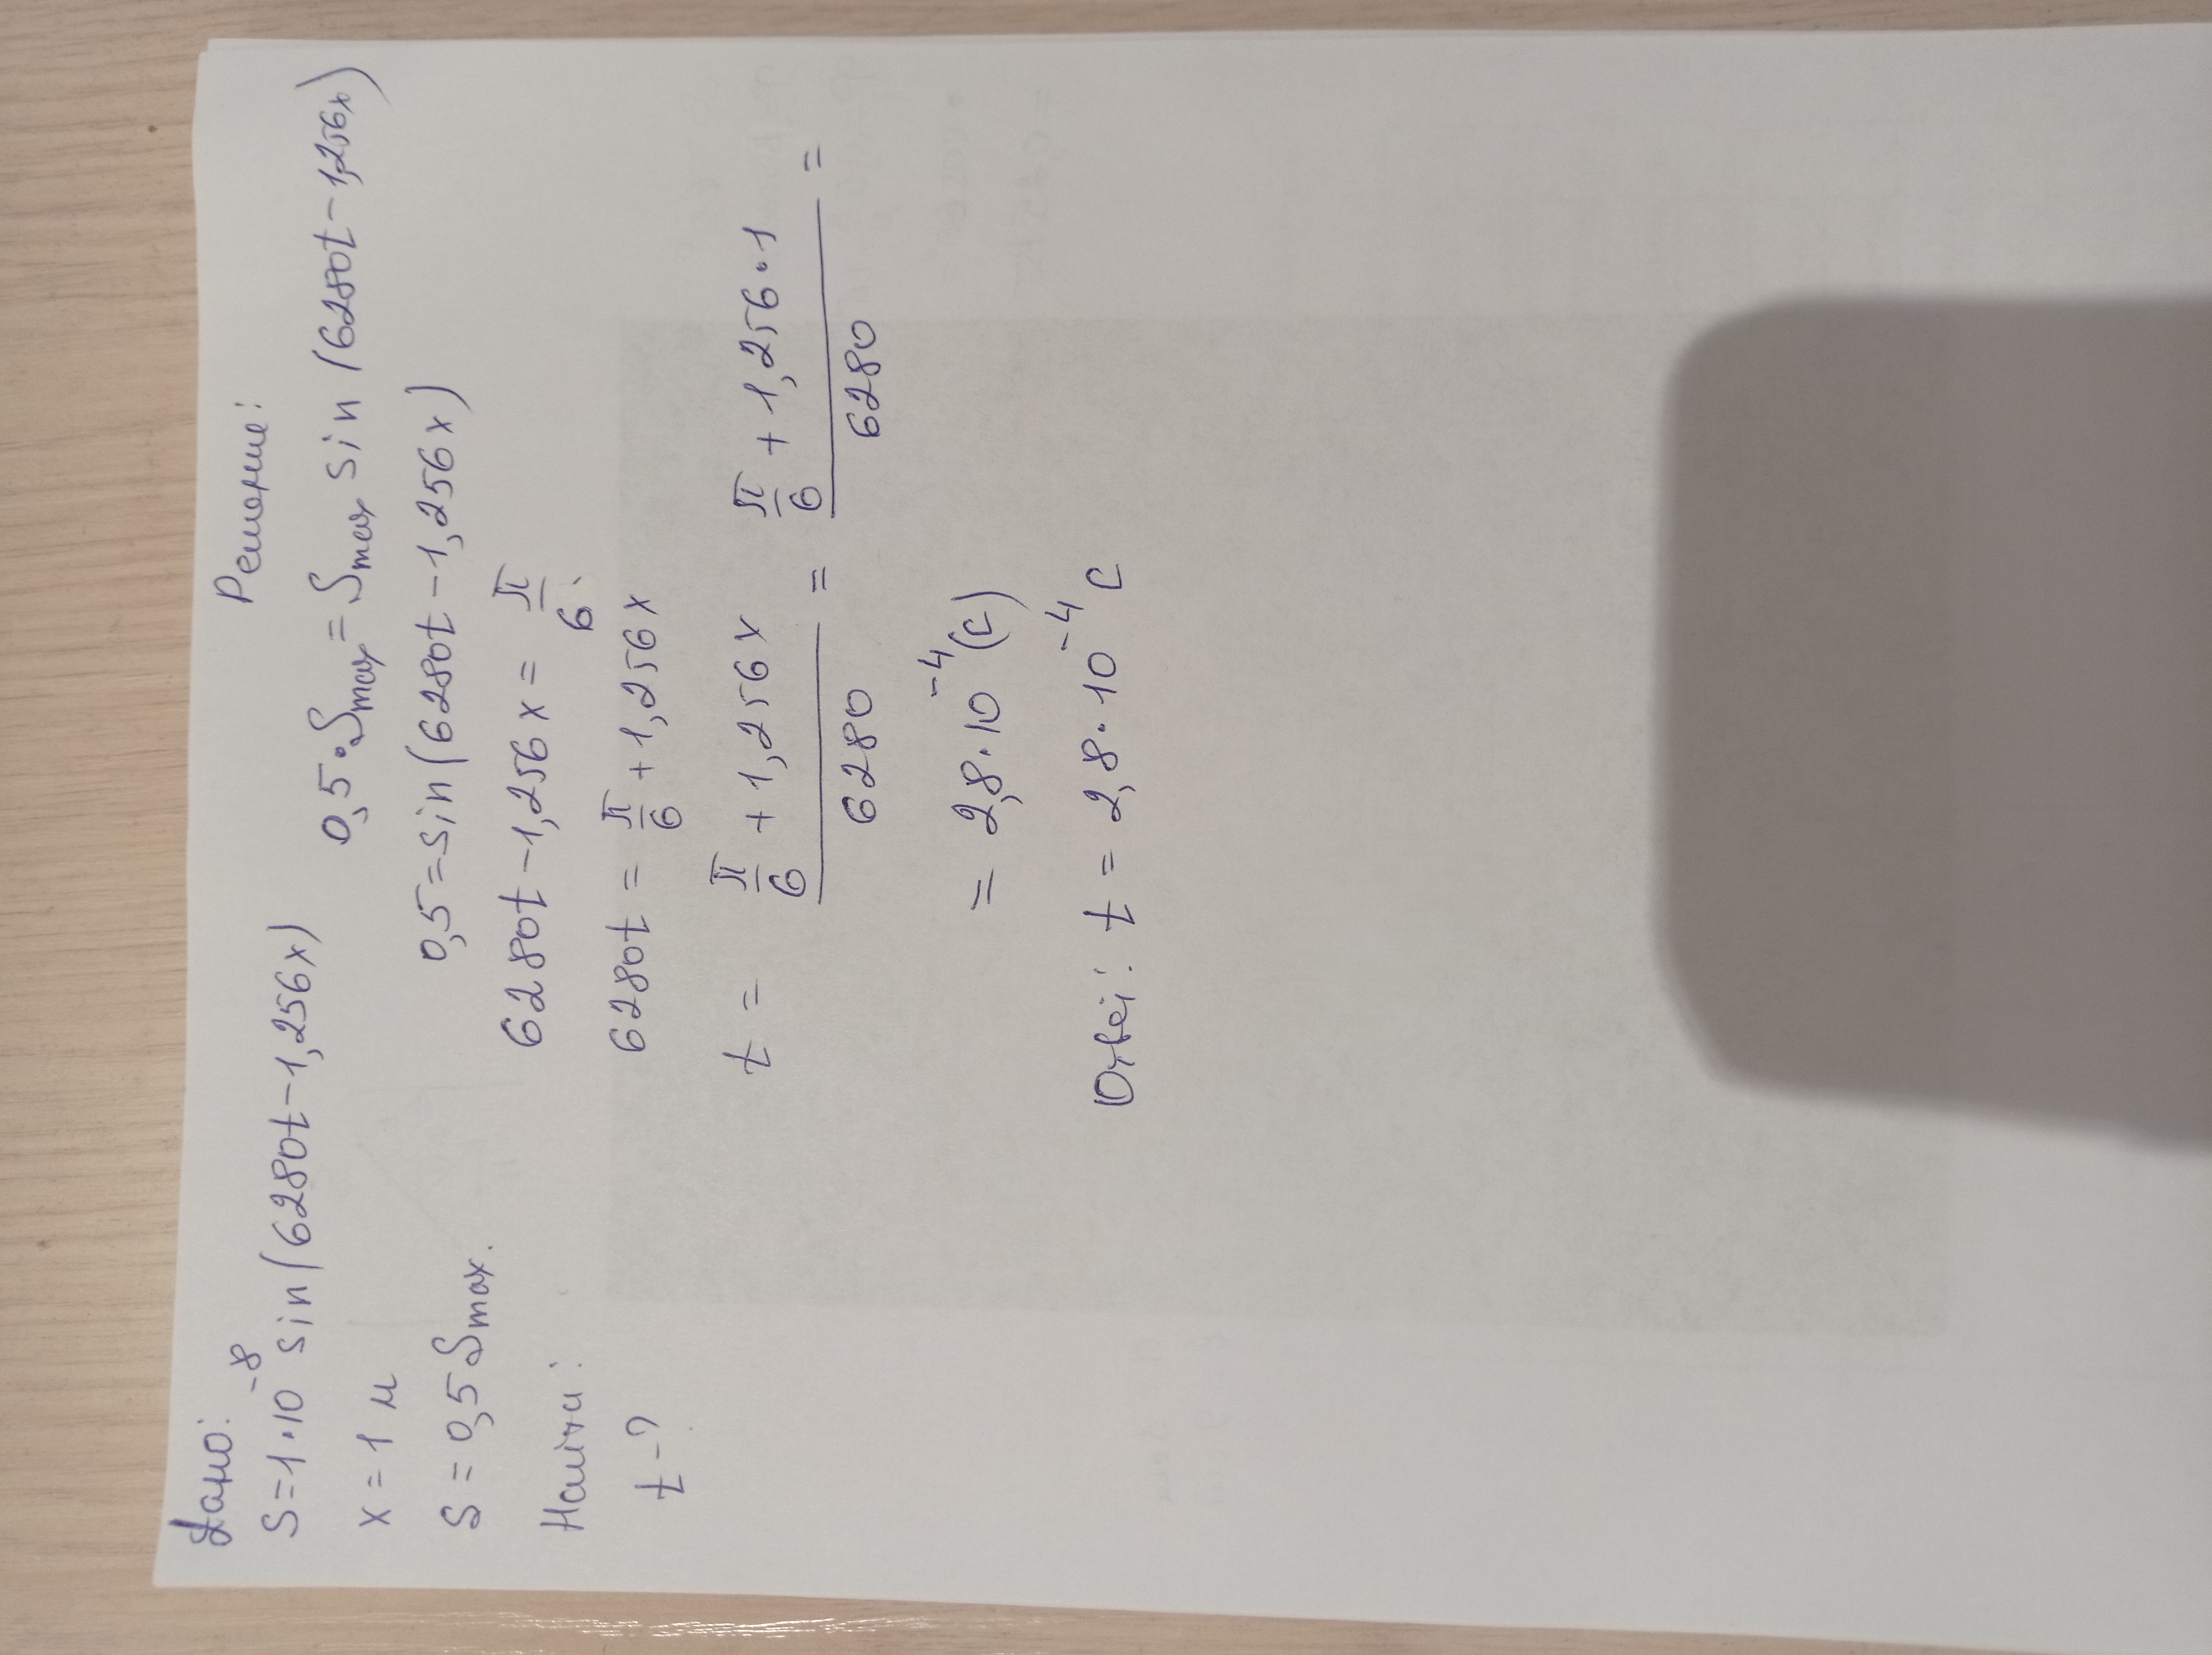 Дано:
S=1·10⁻⁸ sin(6280t-1,256x)
x = 1 м
S = 0,5 Smax.
Найти:
t-?
Решение:
0,5·Smax = Smax sin (6280t-1,256x)
0,5=sin(6280t-1,256x)
6280t-1,256x = π/6
6280t = π/6 + 1,256x
t = (π/6 + 1,256x)/6280 = (π/6 + 1,256·1)/6280 =
= 2,8·10⁻⁴(с)
Ответ: t = 2,8·10⁻⁴ с